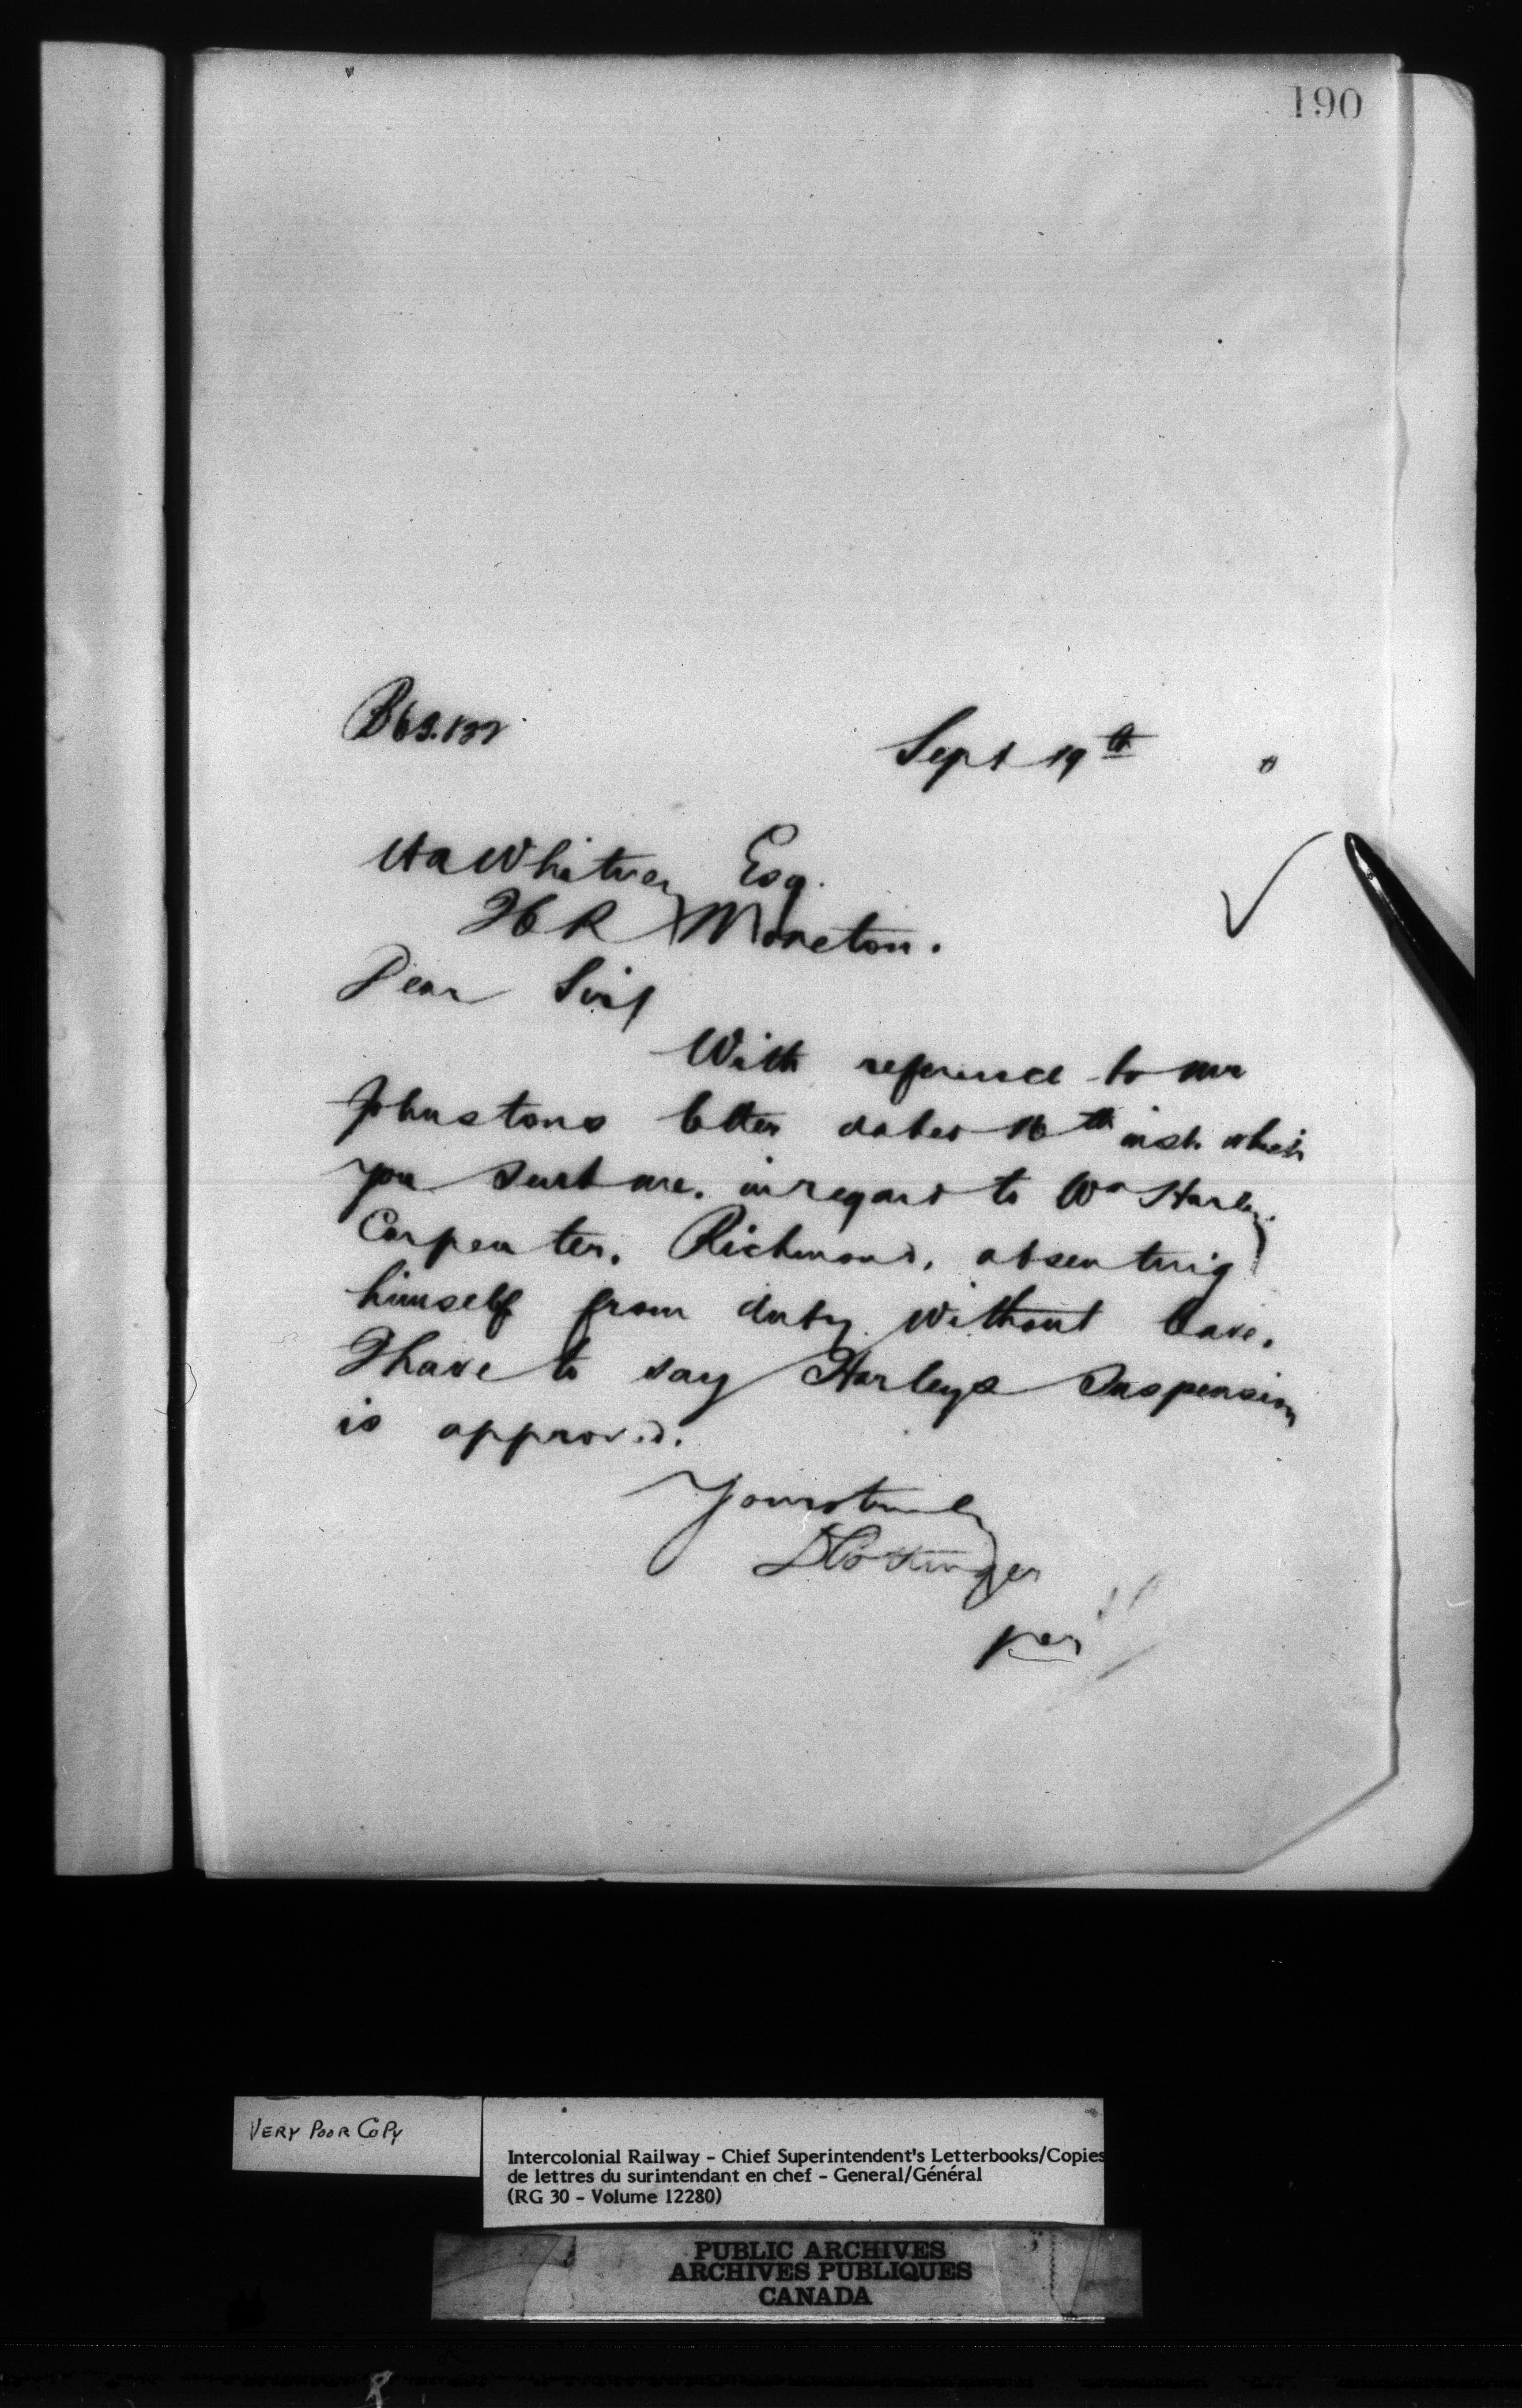 190
Sept 19th "
HA Whitney Esq.
ICR Moncton.
Dear Sir/
With reference to Mr
Johnstons letter dated 16th inst. which
you sent me. in regard to Wm Harley.
Carpenter. Richmond, absenting
himself from duty without leave.
I have to say Harleys Suspension
is approved.
Yours truly
D Pottinger
per
VERY POOR COPY
Intercolonial Railway - Chief Superintendent's Letterbooks/Copies
de lettres du surintendant en chef - General/Général
(RG 30 - Volume 12280)
PUBLIC ARCHIVES
ARCHIVES PUBLIQUES
CANADA